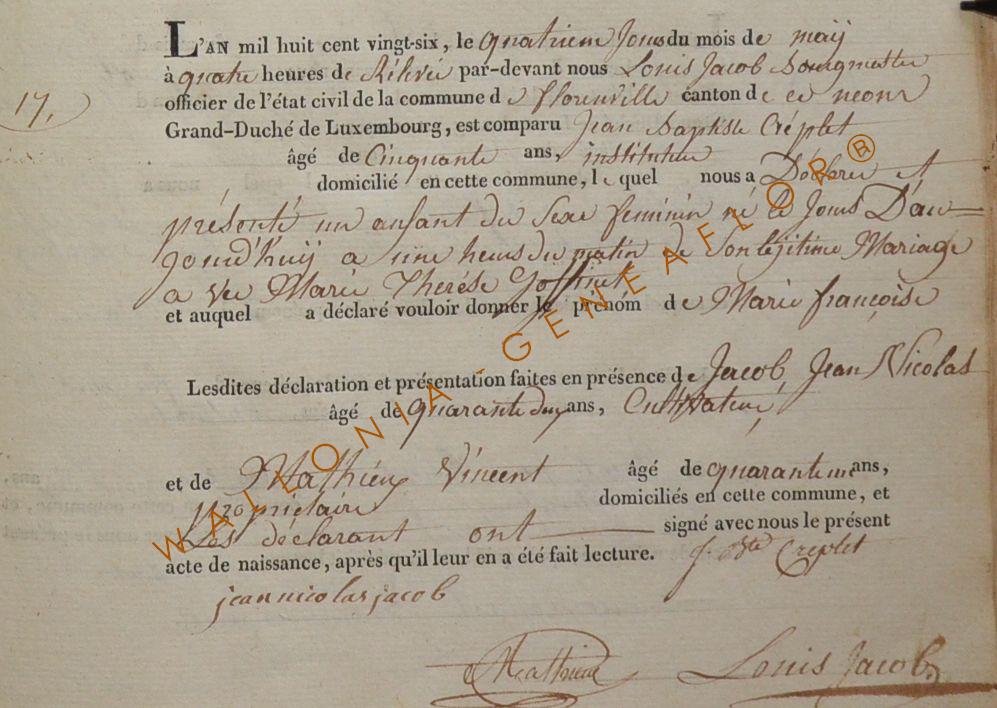 L'AN mil huit cent vingt-six, le quatriem Jours du mois de maÿ
17,
à quatre heures de Rélevée par-devant nous Louis Jacob Bourgmettre
officier de l'état civil de la commune de florenville canton de ce
Grand-Duché de Luxembourg, est comparu Jean Baptiste Créplet
âgé de Cinquante ans, instituteur
domicilié en cette commune, le quel nous a Déclaree et
présenté un enfant du Sexe feminin né le Jours D'au
Jourd'huÿ a une heurs du matin de Son légitime Mariage
a vec Marie Therése Goffinet
et auquel a déclaré vouloir donner le prénom de Marie françoise
Lesdites déclaration et présentation faites en présence de Jacob, Jean Nicolas
âgé de quarante deux ans, Cultivateur,
et de Mathieu Vincent âgé de quarante un ans,
propriétaire domiciliés en cette commune, et
Les déclarant ont signé avec nous le présent
acte de naissance, après qu'il leur en a été fait lecture.
j. Bte Creplet
jean nicolas jacob
Mathieu Louis Jacob
WALLONIA - GENEAFLOR®